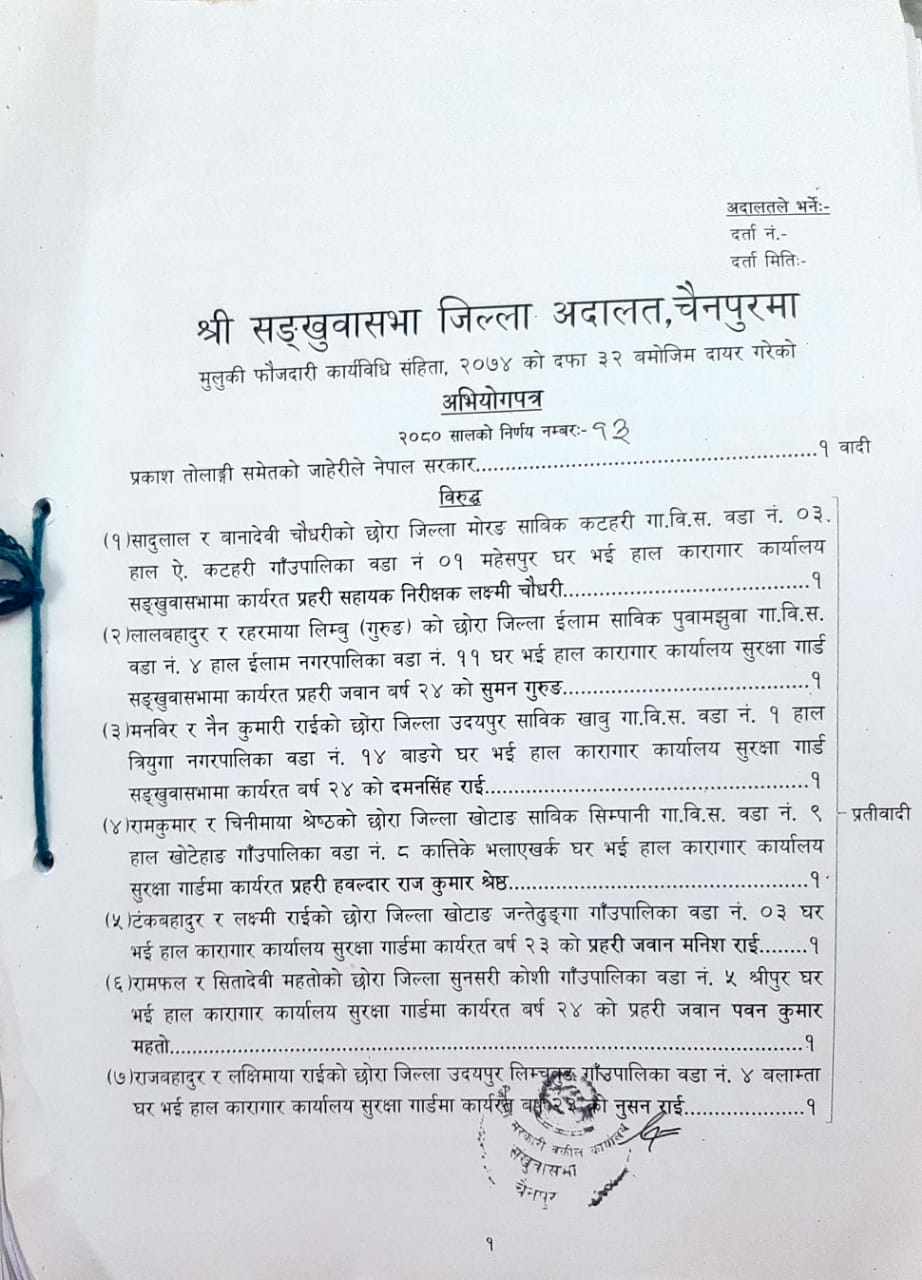 अदालतले भर्नेः-
दर्ता नं.-
दर्ता मितिः-
श्री सङ्खुवासभा जिल्ला अदालत,चैनपुरमा
मुलुकी फौजदारी कार्यविधि संहिता, २०७४ को दफा ३२ बमोजिम दायर गरेको
अभियोगपत्र
२०८० सालको निर्णय नम्बरः- १३
प्रकाश तोलाङ्गी समेतको जाहेरीले नेपाल सरकार..............................................................१ वादी
विरुद्ध
(१)सादुलाल र बानादेवी चौधरीको छोरा जिल्ला मोरङ साविक कटहरी गा.वि.स. वडा नं. ०३.
हाल ऐ. कटहरी गाँउपालिका वडा नं ०१ महेसपुर घर भई हाल कारागार कार्यालय
सङ्खुवासभामा कार्यरत प्रहरी सहायक निरीक्षक लक्ष्मी चौधरी.............................................१
(२)लालबहादुर र रहरमाया लिम्बु (गुरुङ) को छोरा जिल्ला ईलाम साविक पुवामझुवा गा.वि.स.
वडा नं. ४ हाल ईलाम नगरपालिका वडा नं. ११ घर भई हाल कारागार कार्यालय सुरक्षा गार्ड
सङ्खुवासभामा कार्यरत प्रहरी जवान बर्ष २४ को सुमन गुरुङ.............................................१
(३)मनविर र नैन कुमारी राईको छोरा जिल्ला उदयपुर साविक खाबु गा.वि.स. वडा नं. १ हाल
त्रियुगा नगरपालिका वडा नं. १४ बाङगे घर भई हाल कारागार कार्यालय सुरक्षा गार्ड
सङ्खुवासभामा कार्यरत बर्ष २४ को दमनसिंह राई..........................................................१
(४)रामकुमार र चिनीमाया श्रेष्ठको छोरा जिल्ला खोटाङ साविक सिम्पानी गा.वि.स. वडा नं. ९
हाल खोटेहाङ गाँउपालिका वडा नं. ८ कात्तिके भलाएखर्क घर भई हाल कारागार कार्यालय
सुरक्षा गार्डमा कार्यरत प्रहरी हवल्दार राज कुमार श्रेष्ठ......................................................१
प्रतीवादी
(५)टंकबहादुर र लक्ष्मी राईको छोरा जिल्ला खोटाङ जन्तेढुङ्गा गाँउपालिका वडा नं. ०३ घर
भई हाल कारागार कार्यालय सुरक्षा गार्डमा कार्यरत बर्ष २३ को प्रहरी जवान मनिश राई........१
(६)रामफल र सितादेवी महतोको छोरा जिल्ला सुनसरी कोशी गाँउपालिका वडा नं. ५ श्रीपुर घर
भई हाल कारागार कार्यालय सुरक्षा गार्डमा कार्यरत बर्ष २४ को प्रहरी जवान पवन कुमार
महतो...................................................................................................................१
(७)राजबहादुर र लक्षिमाया राईको छोरा जिल्ला उदयपुर लिम्चुबुङ गाँउपालिका वडा नं. ४ बलाम्ता
घर भई हाल कारागार कार्यालय सुरक्षा गार्डमा कार्यरत को नुसन राई.....................१
सरकारी वकील कार्यालय
सखुवासभा
चैनपुर
१